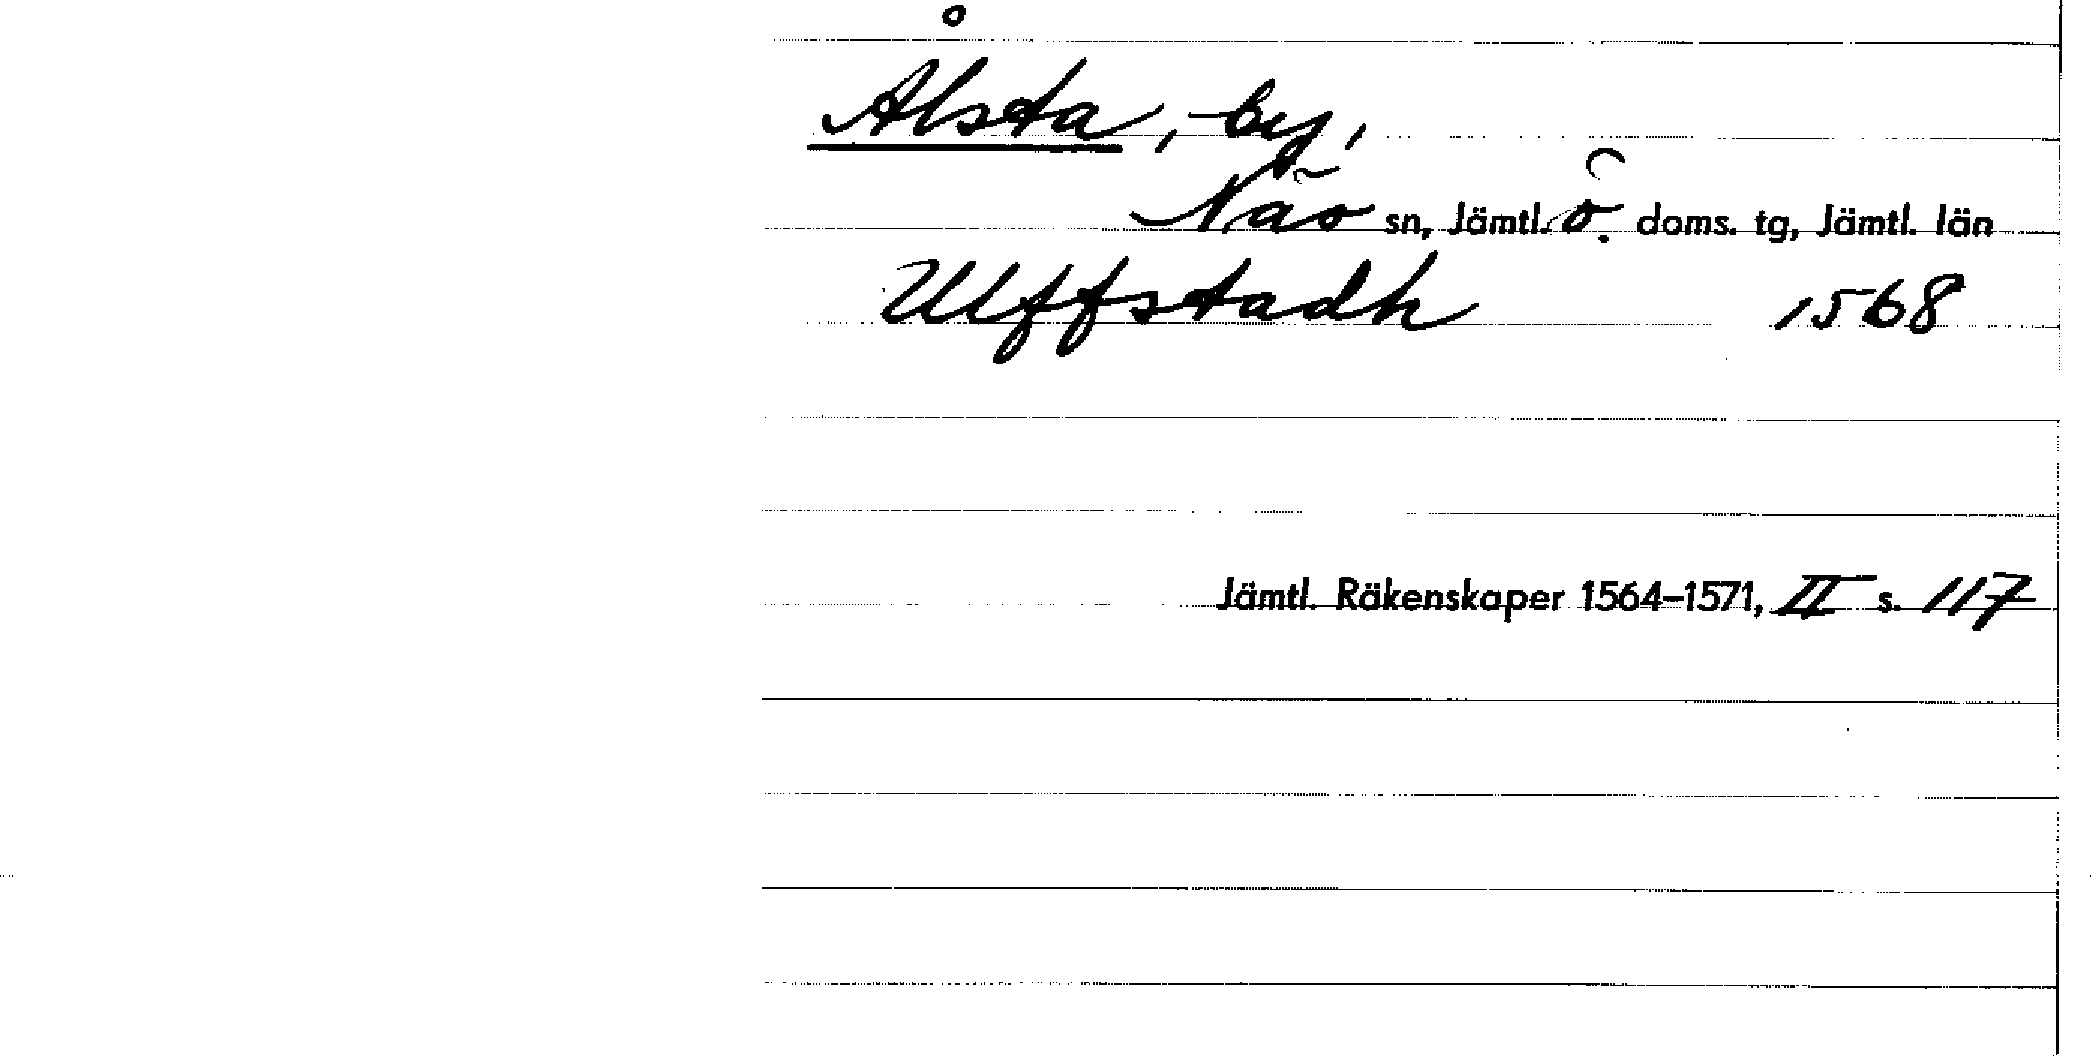 Ålsta, by,
Näs sn, Jämtl. ö. doms. tg, Jämtl. län
Ulffstadh 1568
Jämtl. Räkenskaper 1564–1571, II s. 117